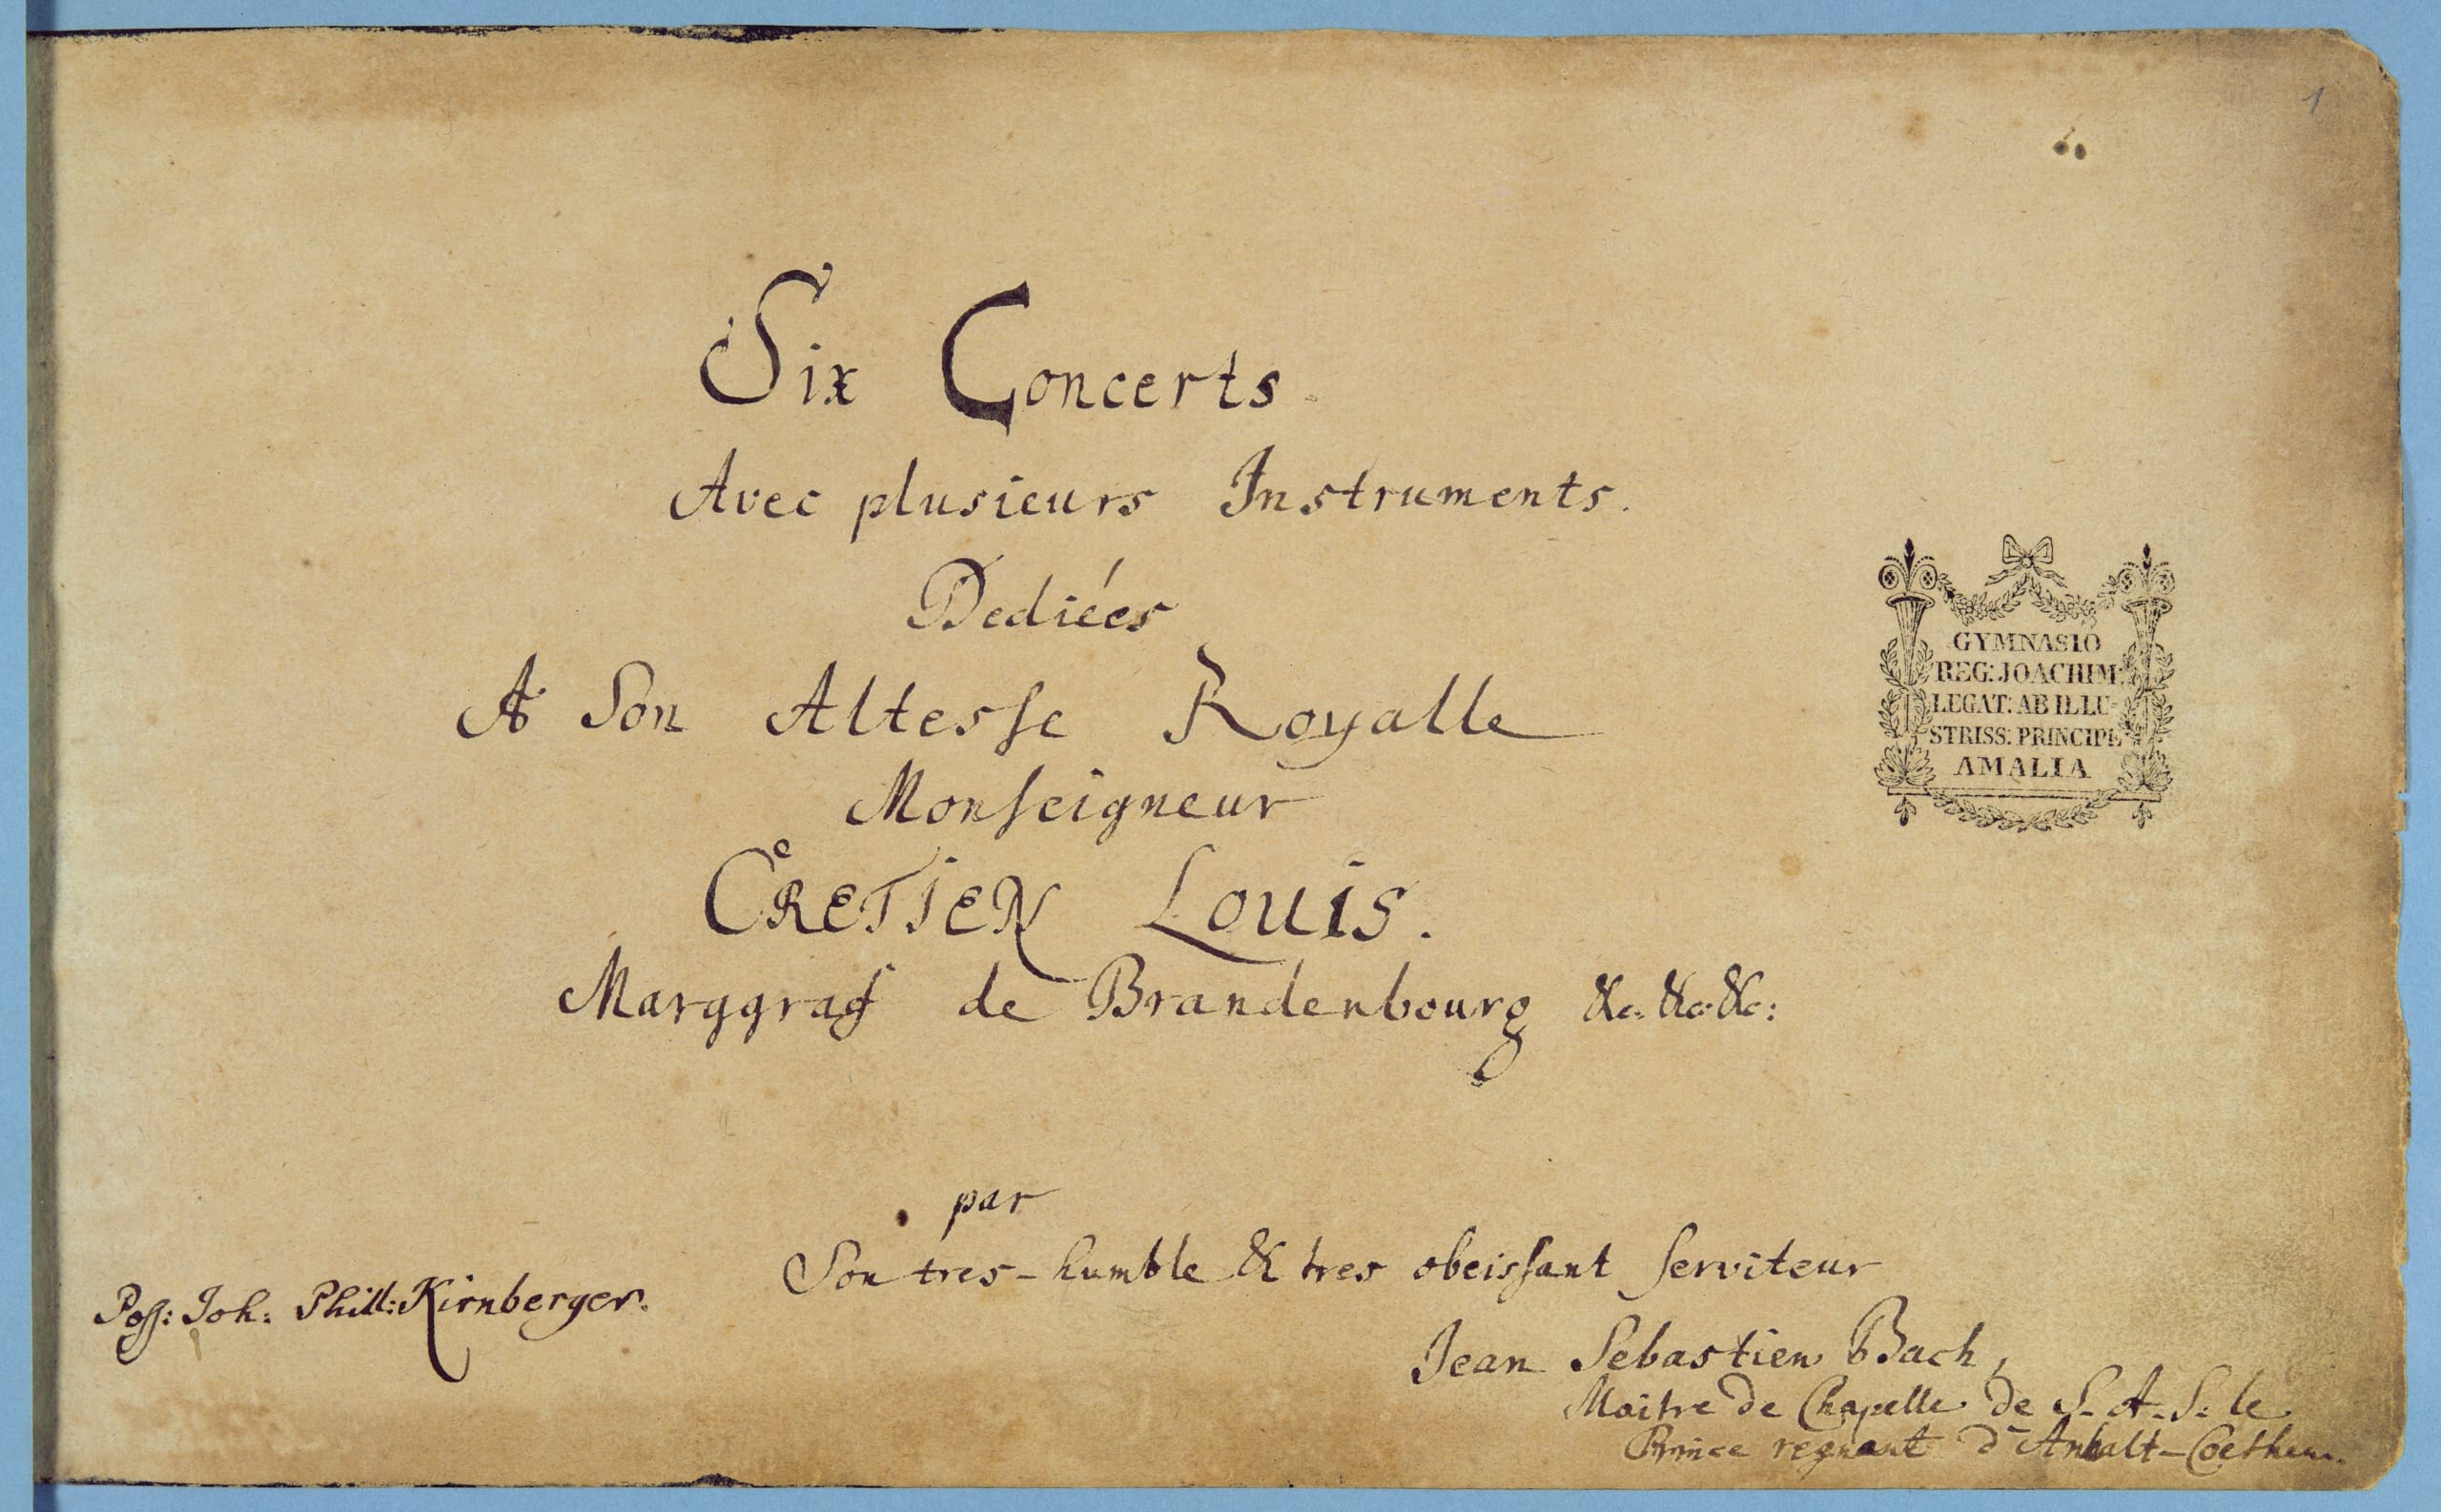 1
Six Concerts
Avec plusieurs Instruments.
Dediées
A Son Altesse Royalle
Monseigneur
CRETIEN LOUIS.
Marggraf de Brandenbourg &c. &c. &c:
par
Son tres-humble & tres obeissant serviteur
Jean Sebastien Bach,
Maitre de Chapelle de S. A. S: le
Prince regnant d'Anhalt-Coethen.
Poss: Joh: Phill: Kirnberger.
GYMNASIO
REG: JOACHIM:
LEGAT: AB ILLU-
STRISS: PRINCIPE
AMALIA